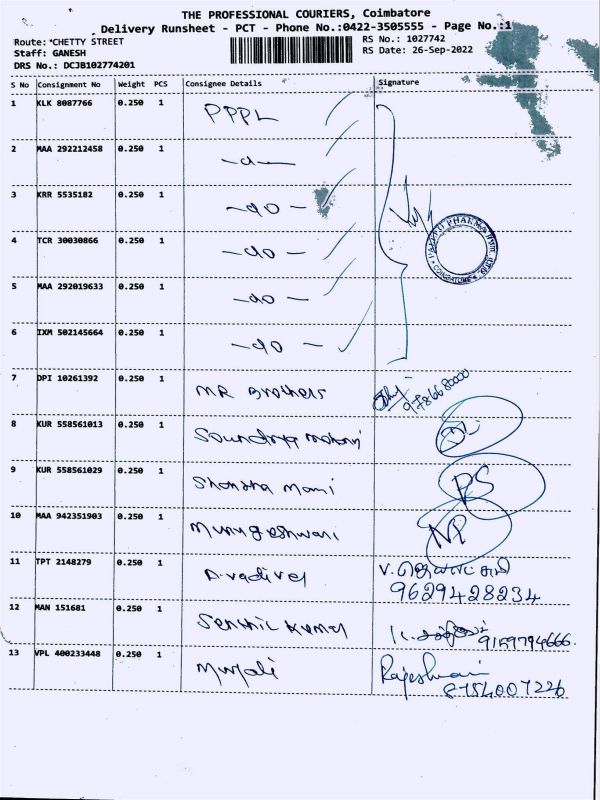 THE PROFESSIONAL COURIERS, Coimbatore
Delivery Runsheet - PCT - Phone No.:0422-3505555 - Page No.:1
Route: *CHETTY STREET RS No.: 1027742
Staff: GANESH RS Date: 26-Sep-2022
DRS No.: DCJB102774201
S No Consignment No Weight PCS Consignee Details Signature
1 KLK 8087766 0.250 1 PPPL
2 MAA 292212458 0.250 1 -d-
3 KRR 5535182 0.250 1 -do-
4 TCR 30030866 0.250 1 -do-
5 MAA 292019633 0.250 1 -do-
6 IXM 502145664 0.250 1 -do-
7 DPI 10261392 0.250 1 MR Brothers 9786680000
8 KUR 558561013 0.250 1 Soundrya
9 KUR 558561029 0.250 1 Shantha mani PS
10 MAA 942351903 0.250 1 Murugeshwari
11 TPT 2148279 0.250 1 A.vadivel V.
9629428234
12 MAN 151681 0.250 1 Senthil kumar K.
9159794666.
13 VPL 400233448 0.250 1 Murali Rajeshwari
8754007226
PHARMA
COIMBATORE